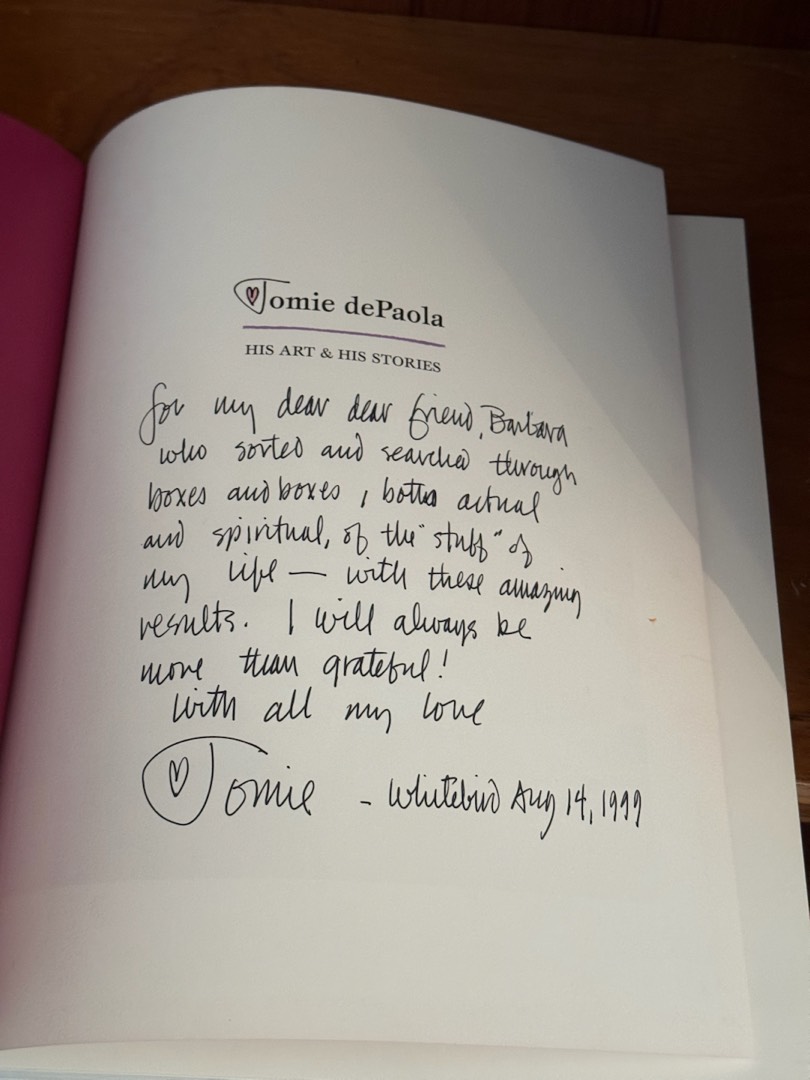 Tomie dePaola
HIS ART & HIS STORIES
for my dear dear friend, Barbara
who sorted and searched through
boxes and boxes, both actual
and spiritual, of the "stuff" of
my life — with these amazing
results. I will always be
more than grateful!
With all my love
Tomie - Whitebird Aug 14, 1999